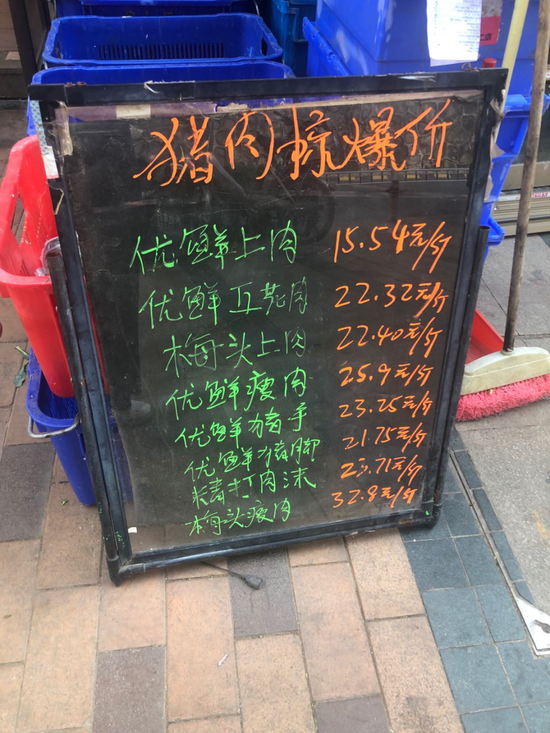 猪肉惊爆价
优鲜上肉 15.54元/斤
优鲜五花肉 22.32元/斤
梅头上肉 22.40元/斤
优鲜瘦肉 25.9元/斤
优鲜猪手 23.25元/斤
优鲜猪脚 21.75元/斤
精打肉沫 23.71元/斤
梅头瘦肉 32.8元/斤